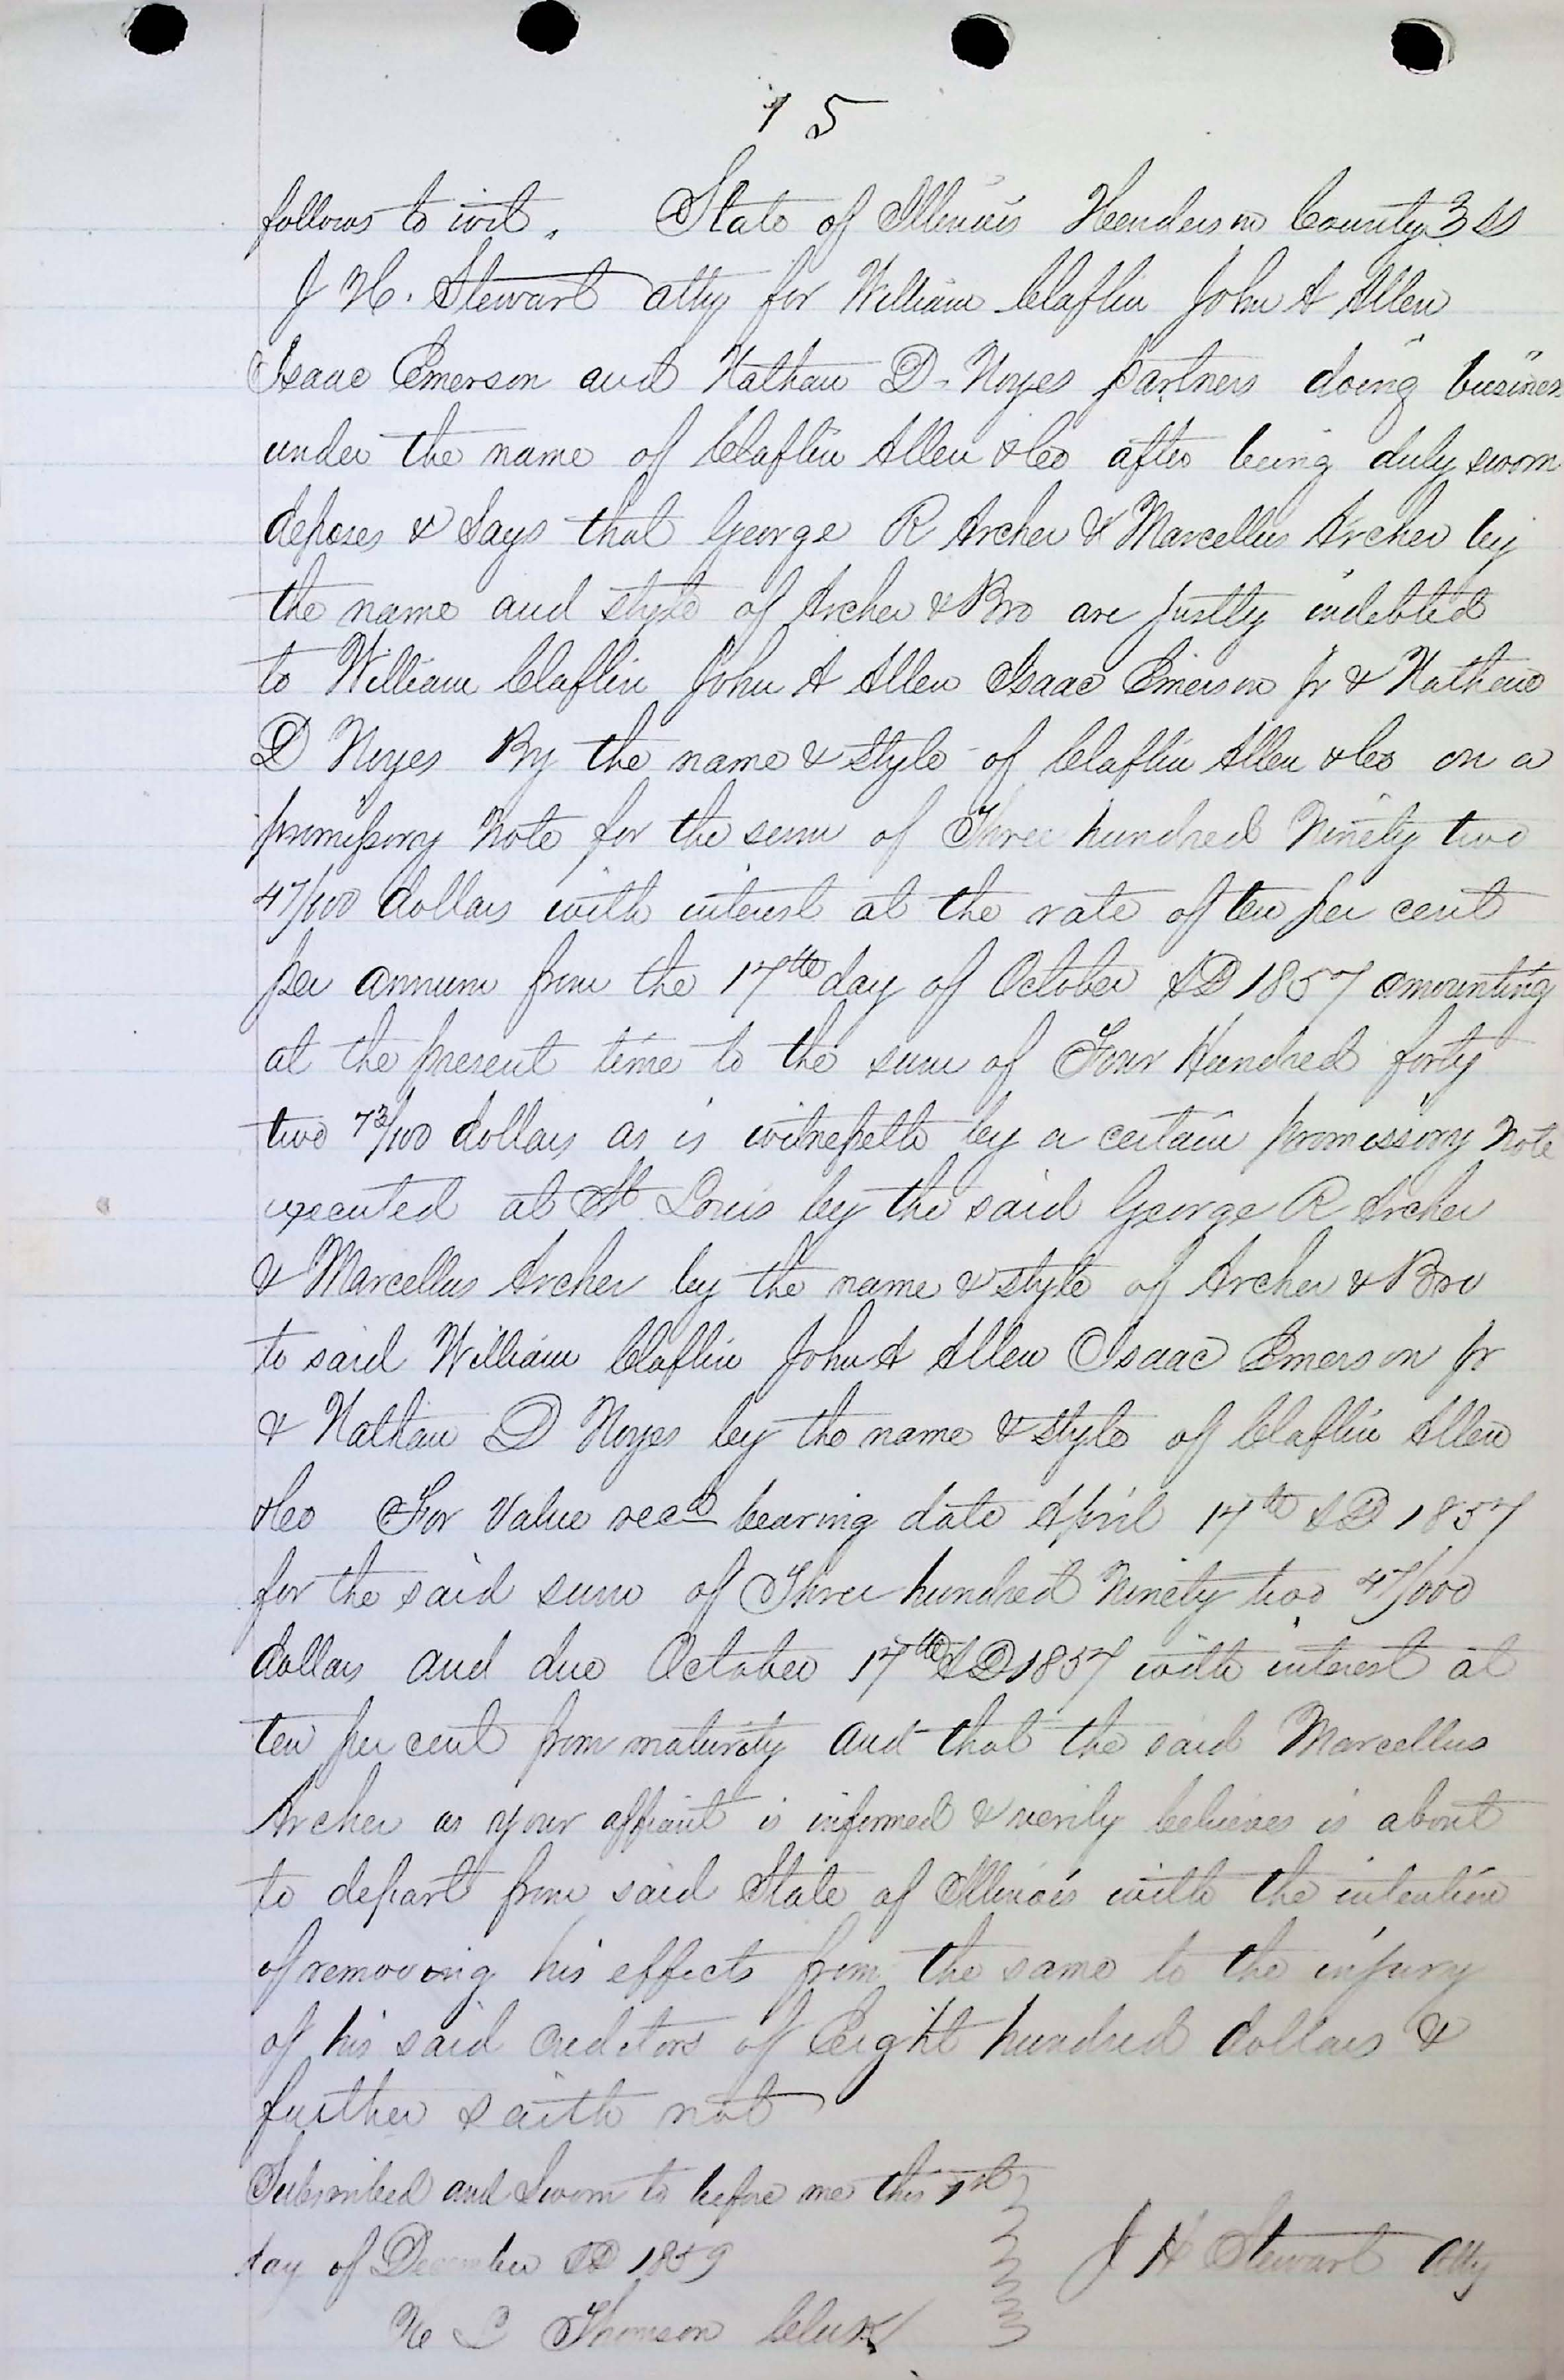 15
follows to wit. State of Illinois Henderson County } ss
J H. Stewart atty for William Claflin John A Allen
Isaac Emerson and Nathan D. Noyes partners doing busines
under the name of Claflin Allen & Co after being duly sworn
deposes & Says that George R Archer & Marcellus Archer by
the name and style of Archer & Bro are justly indebted
to William Claflin John A Allen Isaac Emerson Jr & Nathan
D Noyes By the name & style of Claflin Allen & Co on a
promissory Note for the sum of Three hundred Ninety two
47/100 dollars with interest at the rate of ten per cent
per annum from the 17th day of October AD 1857 amounting
at the present time to the sum of Four Hundred forty
two 73/100 dollars as is witnesseth by a certain promissory Note
executed at St Louis by the said George R Archer
& Marcellus Archer by the name & style of Archer & Bro
to said William Claflin John A Allen Isaac Emerson Jr
& Nathan D Noyes by the name & style of Claflin Allen
& Co For Value recd bearing date April 14th AD 1857
for the said sum of Three hundred Ninety two 47/100
dollars and due October 17th AD 1857 with interest at
ten per cent from maturity and that the said Marcellus
Archer as your affiant is informed & verily believes is about
to depart from said State of Illinois with the intention
of removing his effects from the same to the injury
of his said creditors of Eight hundred dollars &
further saith not
Subscribed and Sworn to before me this 1st
day of December AD 1859
J H Stewart Atty
Thomson Clerk